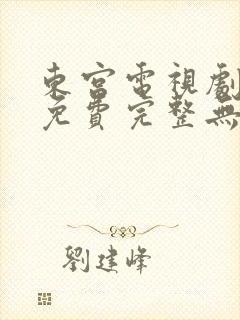 東宮電視劇
免費完整無
劉建峰